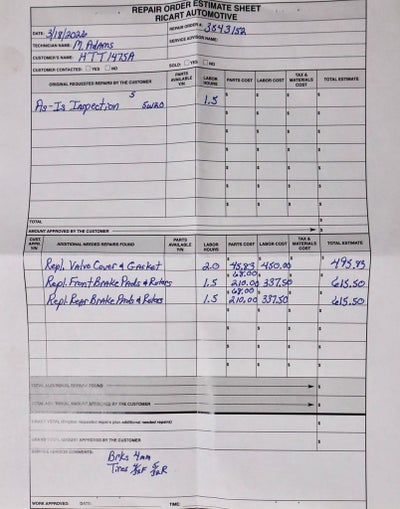 REPAIR ORDER ESTIMATE SHEET
RICART AUTOMOTIVE
DATE: 3/18/2026 REPAIR ORDER #: 3843152
TECHNICIAN NAME: M. Adams SERVICE ADVISOR NAME:
CUSTOMER'S NAME: HTT1475A
CUSTOMER CONTACTED: YES NO SOLD: YES NO
ORIGINAL REQUESTED REPAIRS BY THE CUSTOMER PARTS AVAILABLE Y/N LABOR HOURS PARTS COST LABOR COST TAX & MATERIALS COST TOTAL ESTIMATE
As-Is Inspection 5 5W20 1.5
TOTAL
AMOUNT APPROVED BY THE CUSTOMER
CUST. APPR. Y/N ADDITIONAL NEEDED REPAIRS FOUND PARTS AVAILABLE Y/N LABOR HOURS PARTS COST LABOR COST TAX & MATERIALS COST TOTAL ESTIMATE
Repl. Valve Cover & Gasket 2.0 45.83 450.00 495.83
68.00
Repl. Front Brake Pads & Rotors 1.5 210.00 337.50 615.50
68.00
Repl. Rear Brake Pads & Rotors 1.5 210.00 337.50 615.50
TOTAL ADDITIONAL REPAIR FOUND
TOTAL ADD. REPAIR AMOUNT APPROVED BY THE CUSTOMER
GRAND TOTAL (Original requested repairs plus additional needed repairs)
GRAND TOTAL AMOUNT APPROVED BY THE CUSTOMER
SERVICE ADVISOR COMMENTS:
Brks 4mm
Tires F 5/32R
WORK APPROVED: DATE: TIME: